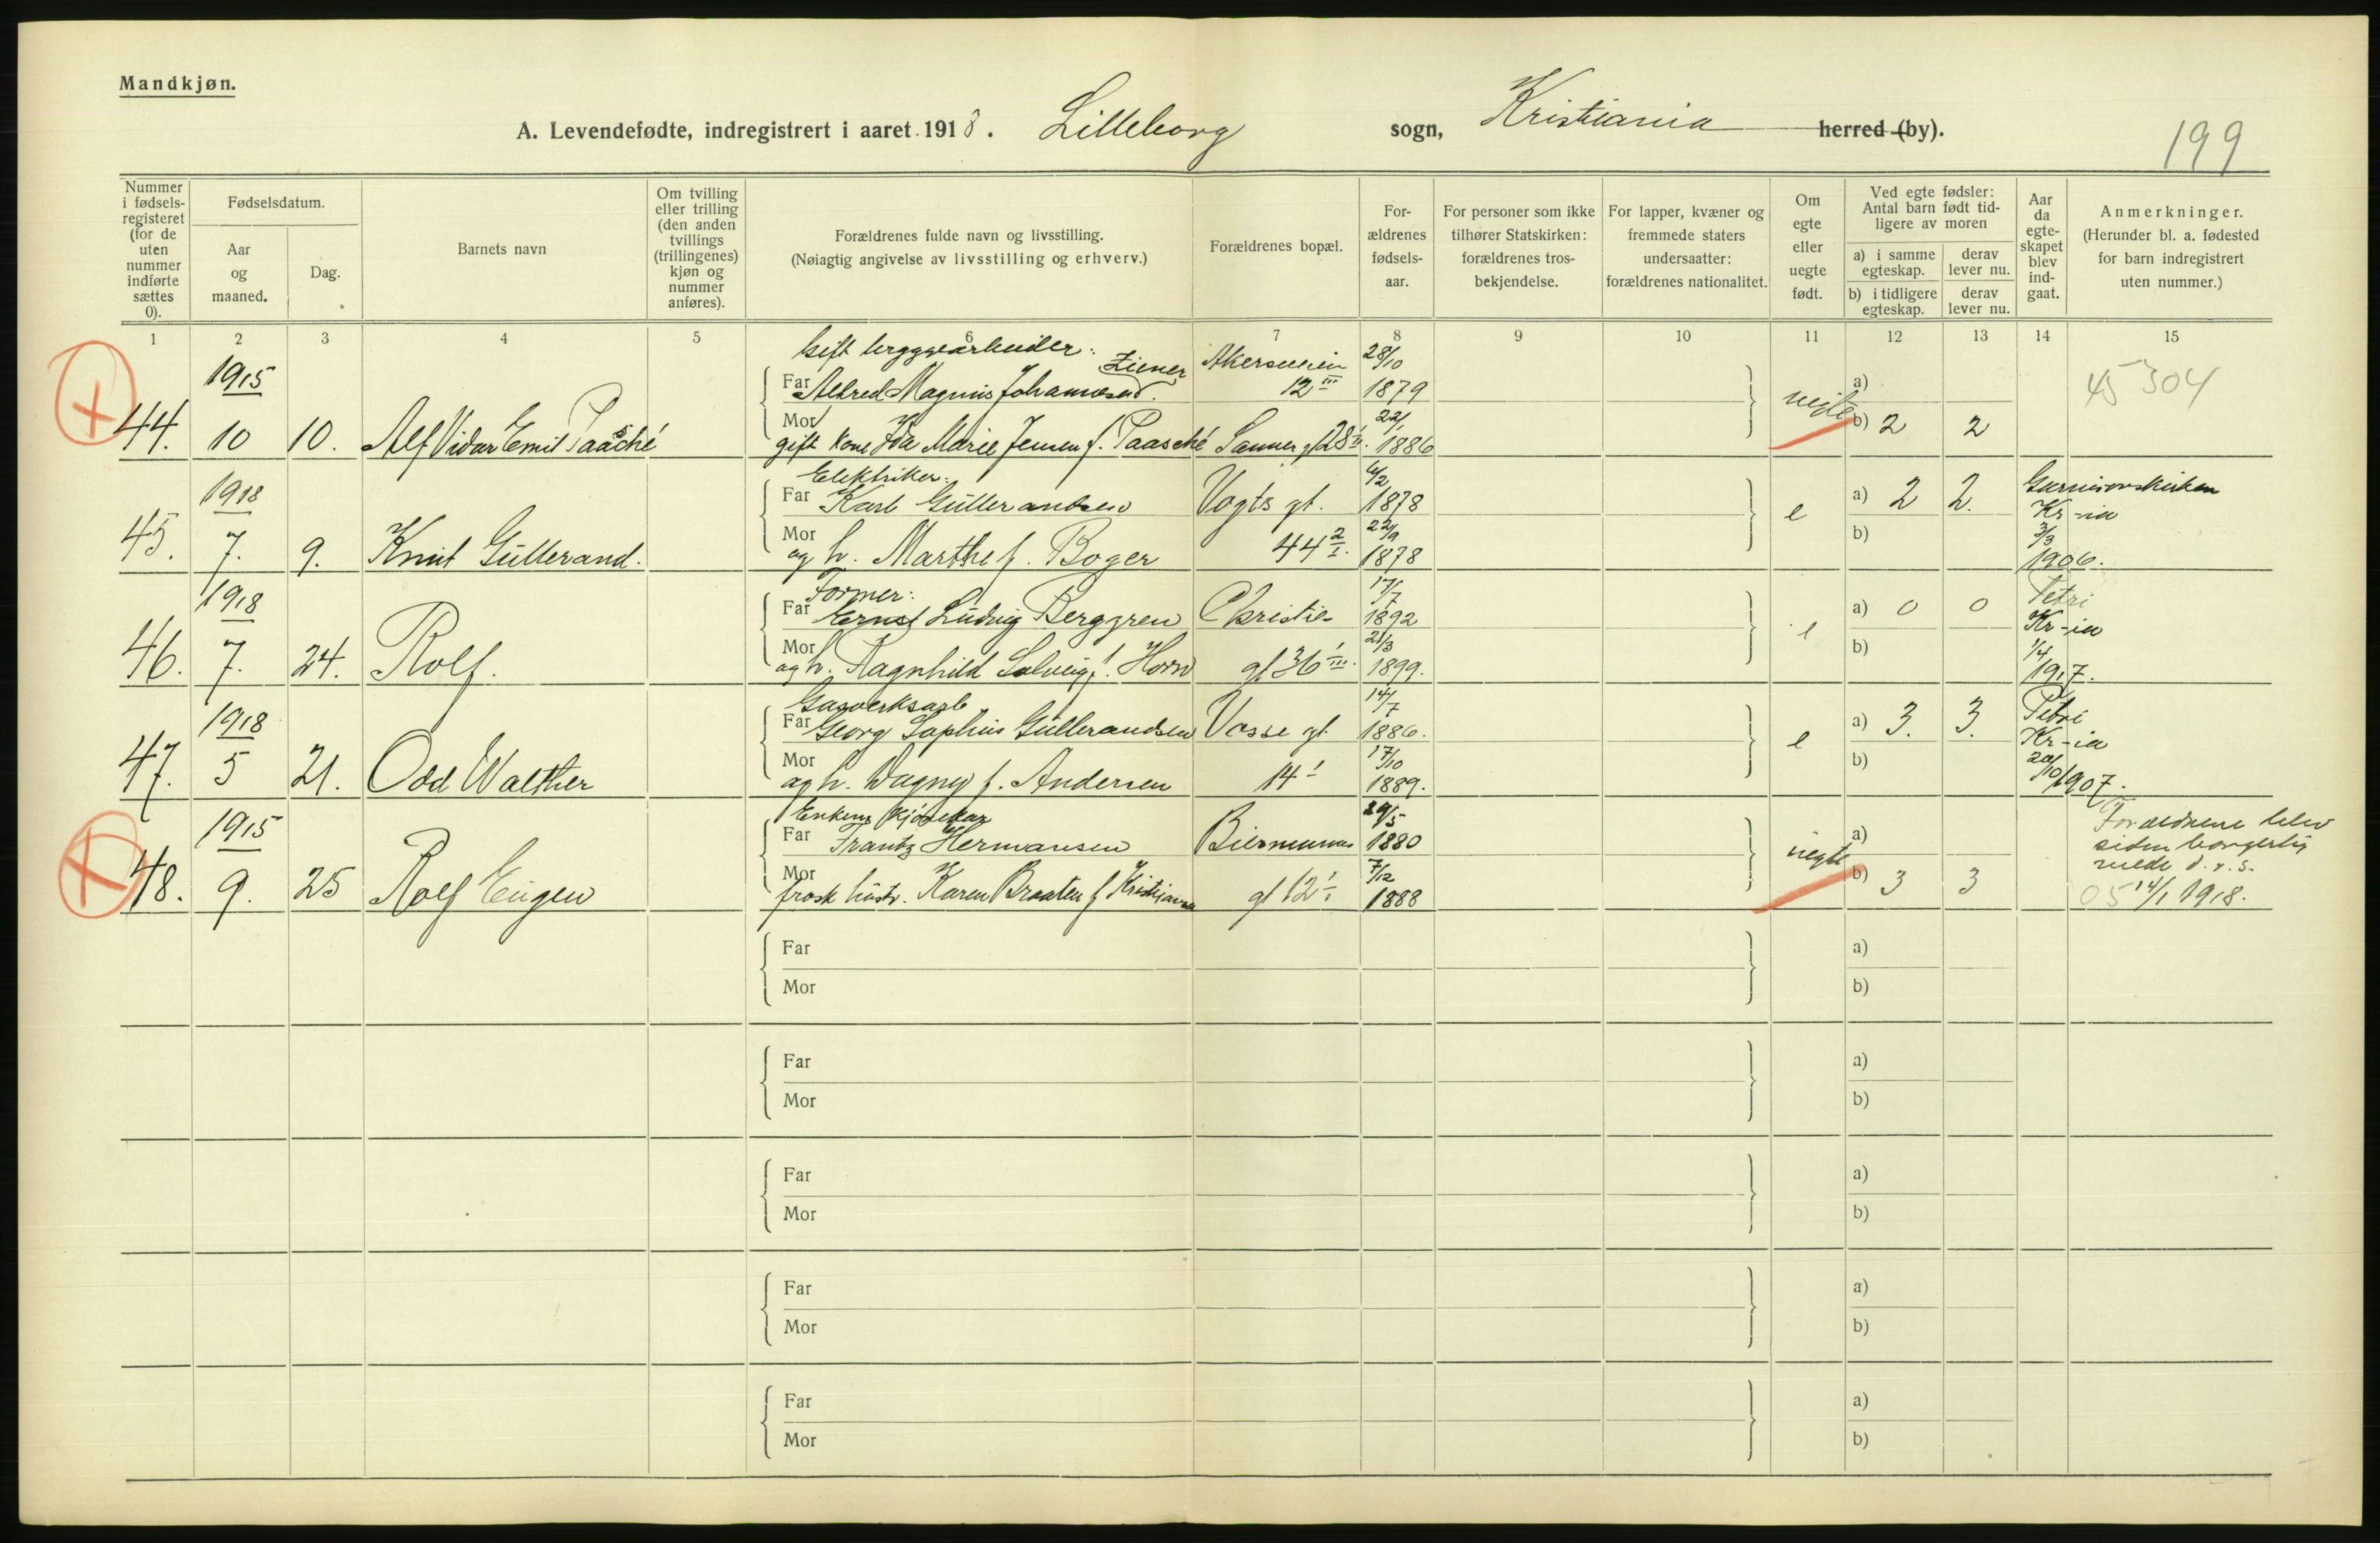 Mandkjøn.
A. Levendefødte, indregistrert i aaret 1918. Lilleborg sogn, Kristiania herred (by).
199
Nummer i fødsels-registeret (for de uten nummer indførte sættes 0).
Fødselsdatum.
Aar og maaned.
Dag.
Barnets navn
Om tvilling eller trilling (den anden tvillings (trillingenes) kjøn og nummer anføres).
Forældrenes fulde navn og livsstilling.
(Nøiagtig angivelse av livsstilling og erhverv.)
Forældrenes bopæl.
For-ældrenes fødsels-aar.
For personer som ikke tilhører Statskirken: forældrenes tros-bekjendelse.
For lapper, kvæner og fremmede staters undersaatter: forældrenes nationalitet.
Om egte eller uegte født.
Ved egte fødsler: Antal barn født tid-ligere av moren
a) i samme egteskap.
derav lever nu.
b) i tidligere egteskap.
derav lever nu.
Aar da egte-skapet blev ind-gaat.
Anmerkninger.
(Herunder bl. a. fødested for barn indregistrert uten nummer.)
1 2 3 4 5 6 7 8 9 10 11 12 13 14 15
Gift bryggearbeider. Ziener
1915 Far Alfred Magnus Johannesen. Akersveien 12 III 28/10 1879 a) 45304
44. 10 10. Alf Vidar Emil Paasché Mor gift kone Ida Marie Jensen f. Paasché Sanner gt 28 22/1 1886 uegte b) 2 2
Elektriker.
1918 Far Karl Gullerandsen Vogts gt. 6/2 1878 e a) 2 2. Garnisonskirken Kr-ia
45. 7. 9. Knut Gullerand. Mor og h. Marthe f. Boger 44 2/I. 22/9 1878 b) 3/3 1906.
Former:
1918 Far Ernst Ludvig Berggren Christies 17/7 1892 e a) 0 0 Petri Kr-ia
46. 7. 24. Rolf. Mor og h. Ragnhild Solveig f. Horn gt 36 III. 21/3 1899. b) 1/4 1917.
Gasverksarb
1918 Far Georg Sophus Gullerandsen Vosse gt 14/7 1886. e a) 3. 3. Petri Kr-ia
47. 5 21. Odd Walther Mor og h. Dagny f. Andersen 14 I 17/10 1889. b) 20/10 1907.
Enkem Kjøsekar
1915 Far Frantz Hermansen Biermanns 29/5 1880 uegte a) Forældrene blev siden borgerlig viede d. v. s.
48. 9. 25 Rolf Eugen Mor frask hustr. Karen Braaten f Kristiansen gt 12 I 7/12 1888 b) 3 3 05 14/1 1918.
Far a)
Mor b)
Far a)
Mor b)
Far a)
Mor b)
Far a)
Mor b)
Far a)
Mor b)